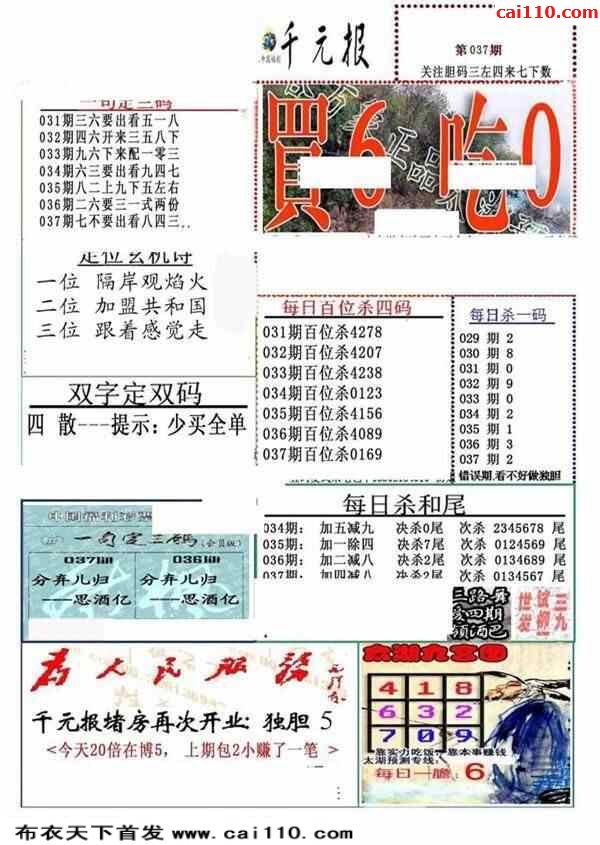 cai110.com
千元报
第037期
关注胆码三左四来七下数
一句定三码
031期三六要出看五一八
032期四六开来三五八下
033期九六下来配一零三
034期六三要出看九四七
035期八二上九下五左右
036期二六要三一式两份
037期七不要出看八四三..
買6 吃0
定位玄机诗
一位 隔岸观焰火
二位 加盟共和国
三位 跟着感觉走
每日百位杀四码
031期百位杀4278
032期百位杀4207
033期百位杀4238
034期百位杀0123
035期百位杀4156
036期百位杀4089
037期百位杀0169
每日杀一码
029 期 2
030 期 8
031 期 0
032 期 9
033 期 0
034 期 2
035 期 1
036 期 3
037 期 2
错误期,看不好做独胆
双字定双码
四 散---提示: 少买全单
每日杀和尾
034期: 加五减九 决杀0尾 次杀 2345678 尾
035期: 加一除四 决杀7尾 次杀 0124569 尾
036期: 加二减八 决杀2尾 次杀 0134689 尾
037期: 加四减八 决杀2尾 次杀 0134567 尾
一句定三码(会员版)
037期
分弃儿归
——思酒亿
036期
分弃儿归
——思酒亿
为人民服务
千元报堵房再次开业: 独胆 5
<今天20倍在博5, 上期包2小赚了一笔 >
太湖九宫图
4 1 8
6 3 2
7 0 9
靠实力吃饭, 靠本事赚钱
太湖预测专线:
每日一胆: 6
布衣天下首发 www.cai110.com